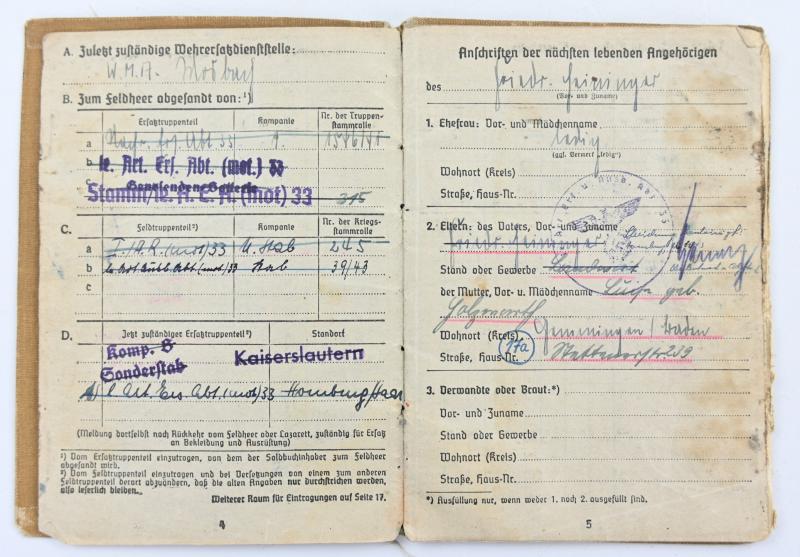 A. Zuletzt zuständige Wehrersatzdienststelle:
W.M.A. Mosbach
B. Zum Feldheer abgesandt von:¹)
Ersatztruppenteil Kompanie Nr. der Truppenstammrolle
a Nachr. Ers. Abt 33 1.
b le. Art. Ers. Abt. (mot.) 33
Genesenden-Batterie
Stamm/le. A. E. A. (mot) 33 315
C. Feldtruppenteil²) Kompanie Nr. der Kriegsstammrolle
a I/A.R. (mot) 33 St. Stab 245
b le Art Ausb. Abt. (mot) 33 Stab 39/43
c
D. Jetzt zuständiger Ersatztruppenteil²) Standort
Komp. B Kaiserslautern
Sonderstab
l. Art. Ers. Abt. (mot) 33 Homburg/Saar
(Meldung dortselbst nach Rückkehr vom Feldheer oder Lazarett, zuständig für Ersatz
an Bekleidung und Ausrüstung)
¹) Vom Ersatztruppenteil einzutragen, von dem der Soldbuchinhaber zum Feldheer
abgesandt wird.
²) Vom Feldtruppenteil einzutragen und bei Versetzungen von einem zum anderen
Feldtruppenteil derart abzuändern, daß die alten Angaben nur durchstrichen werden,
also leserlich bleiben.
Weiterer Raum für Eintragungen auf Seite 17.
4
Anschriften der nächsten lebenden Angehörigen
des Friedr. Heininger
(Vor- und Zuname)
1. Ehefrau: Vor- und Mädchenname
ledig
(ggf. Vermerk „ledig")
Wohnort (Kreis)
Straße, Haus-Nr.
2. Eltern: des Vaters, Vor- und Zuname
Friedr. Heininger
Stand oder Gewerbe Landwirt
der Mutter, Vor- u. Mädchenname Luise geb.
Holzwarth
Wohnort (Kreis) Gemmingen / Baden
17a
Straße, Haus-Nr. 239
3. Verwandte oder Braut:*)
Vor- und Zuname
Stand oder Gewerbe
Wohnort (Kreis)
Straße, Haus-Nr.
*) Ausfüllung nur, wenn weder 1. noch 2. ausgefüllt sind.
5